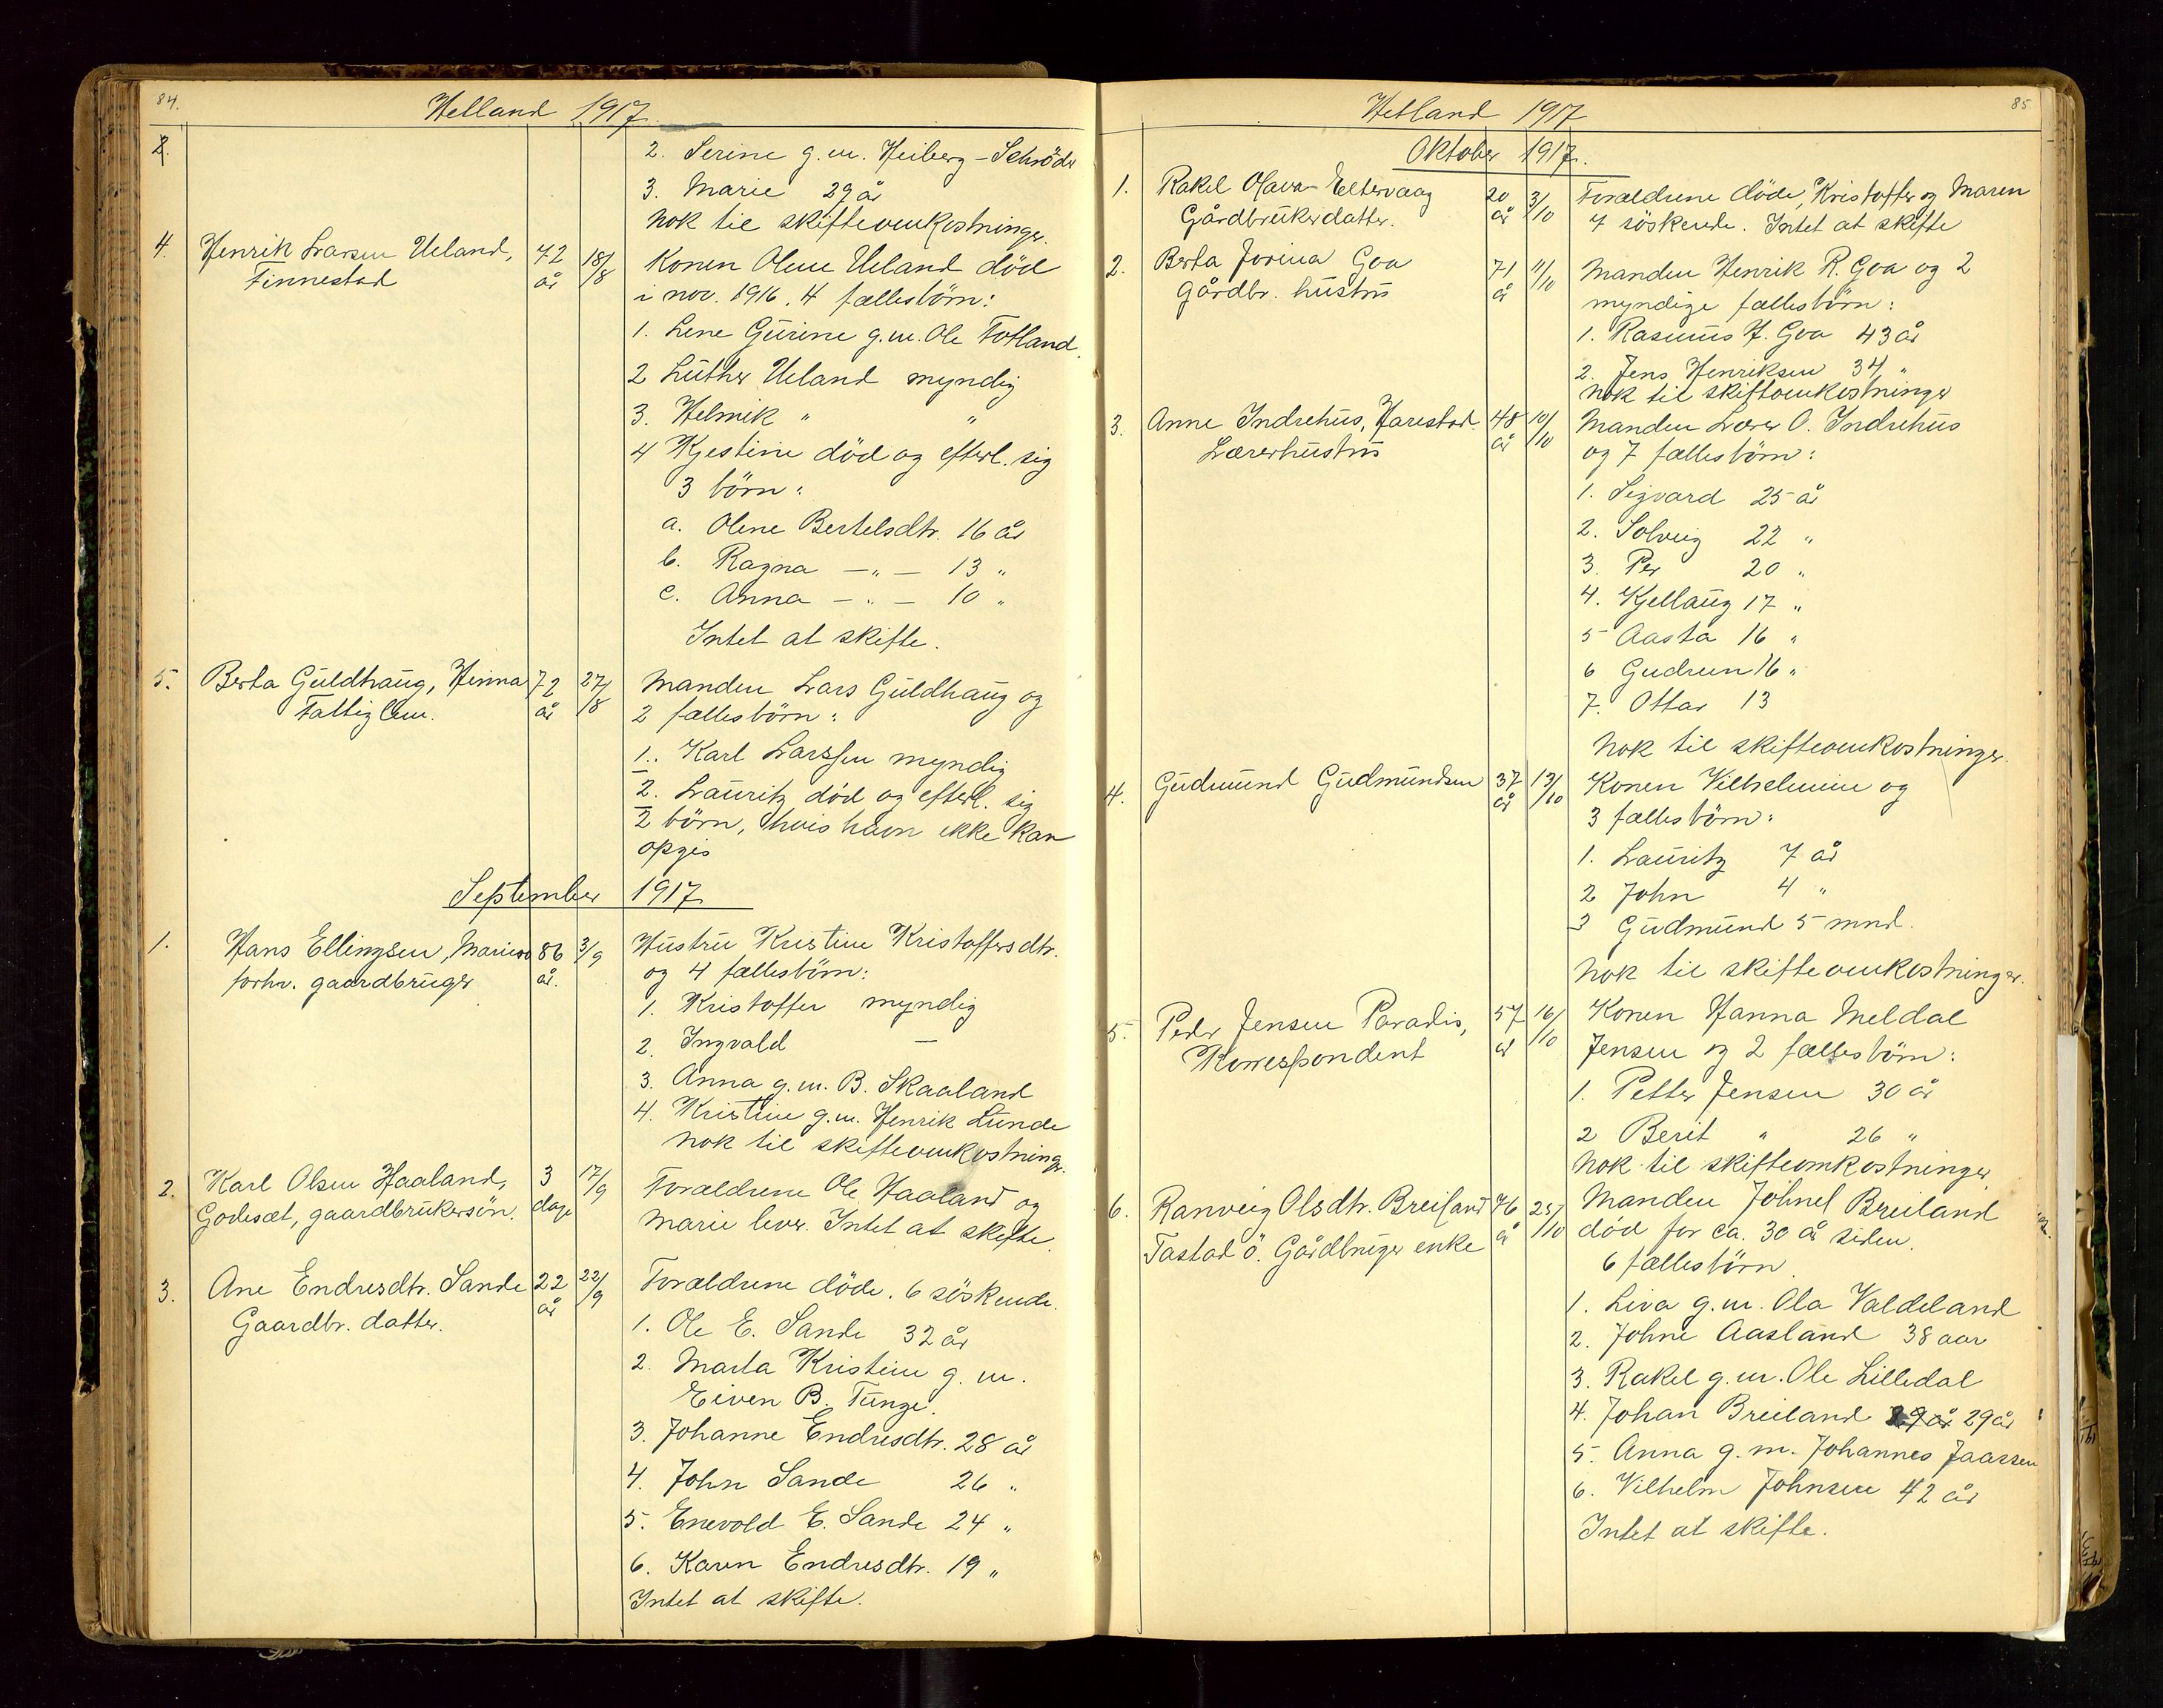 84.
Hetland 1917.
2.
2. Serine g.m. Heiberg-Schröder
3. Marie 29 år
Nok til skifteomkostninger.
4. Henrik Larsen Ueland, 72 18/8 Konen Olene Ueland död
Finnestad år i nov. 1916. 4 fællesbörn:
1. Lene Gurine g.m. Ole Totland.
2 Luther Ueland myndig
3. Helmik " "
4 Kjestine död og efterl. sig
3 börn:
a. Olene Bertelsdtr. 16 år
b. Ragna —"— 13 "
c. Anna —"— 10 "
Intet at skifte.
5. Berta Guldhaug, Hinna 72 27/8 Manden Lars Guldhaug og
Fattiglem. år 2 fællesbörn:
1. Karl Larssen myndig
2. Lauritz död og efterl. sig
2 börn, hvis navn ikke kan
opgis
September 1917
1. Hans Ellingsen, Mariero 86 3/9 Hustru Kristine Kristoffersdtr.
forhv. gaardbruger år. og 4 fællesbörn:
1. Kristoffer myndig
2. Ingvald —
3. Anna g.m. B. Skaaland
4. Kristine g.m. Henrik Lunde
Nok til skifteomkostninger.
2. Karl Olsen Haaland, 3 17/9 Forældrene Ole Haaland og
Godeset, gaardbrukersön. dage Marie lever. Intet at skifte.
3. Ane Endresdtr. Sande 22 22/9 Forældrene döde. 6 söskende.
Gaardbr. datter. år
1. Ole E. Sande 32 år
2. Marta Kristine g.m.
Eiven B. Tunge.
3. Johanne Endresdtr. 28 år
4. John Sande 26 "
5. Enevold E. Sande 24 "
6. Karen Endresdtr. 19 "
Intet at skifte.
85
Hetland 1917
Oktober 1917.
1. Rakel Olava Eltervaag 20 3/10 Forældrene döde, Kristoffer og Maren
Gårdbrukerdatter. år 7 söskende. Intet at skifte
2. Berta Jorina Goa 71 11/10 Manden Henrik R. Goa og 2
Gårdbr. hustru år myndige fællesbörn:
1. Rasmus H. Goa 43 år
2. Jens Henriksen 34 "
Nok til skifteomkostninger
3. Anne Indrehus, Harestad 48 10/10 Manden Lærer O. Indrehus
Lærerhustru år og 7 fællesbörn:
1. Sigvard 25 år
2. Solveig 22 "
3. Per 20 "
4. Kjellaug 17 "
5 Aasta 16 "
6 Gudrun 16 "
7. Ottar 13
Nok til skifteomkostninger.
4. Gudmund Gudmundsen 37 13/10 Konen Vilhelmine og
år 3 fællesbörn:
1. Lauritz 7 år
2 John 4 "
3 Gudmund 5 mnd.
Nok til skifteomkostninger.
5. Peder Jensen Paradis, 57 16/10 Konen Hanna Meldal
Korrespondent år Jensen og 2 fællesbörn:
1. Petter Jensen 30 år
2 Berit " 26 "
Nok til skifteomkostninger
6. Ranveig Olsdtr. Breiland 76 25/10 Manden Johnel Breiland
Tastad ö. Gårdbruger enke år död for ca. 30 år siden.
6 fællesbörn.
1. Liva g.m. Ola Valdeland
2. Johne Aasland 38 aar
3. Rakel g.m. Ole Lilledal
4. Johan Breiland 29 år
5. Anna g.m. Johannes Jaassen
6. Vilhelm Johnsen 42 år
Intet at skifte.